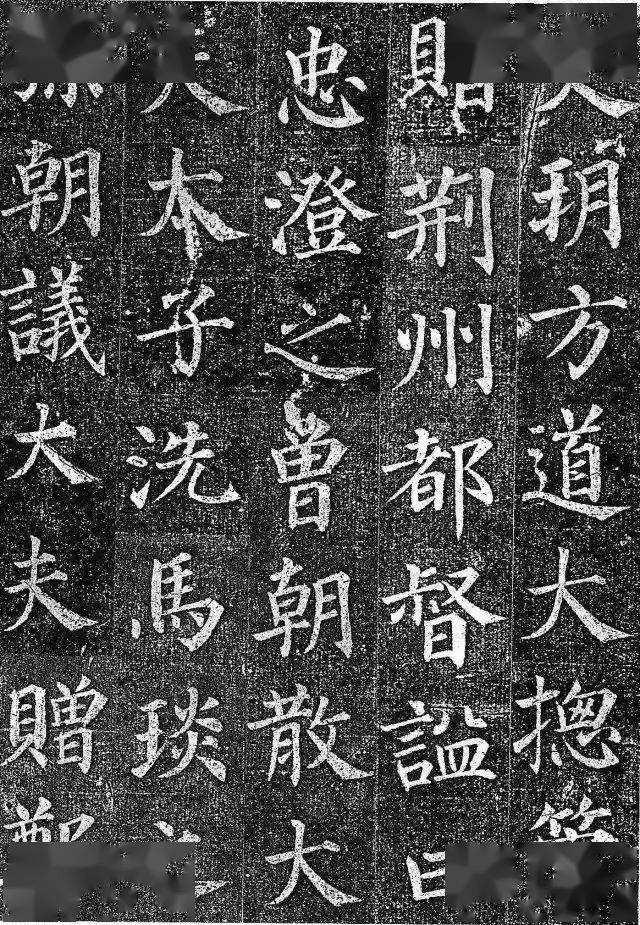 朔方道大摠管
贈荆州都督謚曰
忠澄之曾朝散大
夫太子洗馬琰之
孫朝議大夫贈鄭